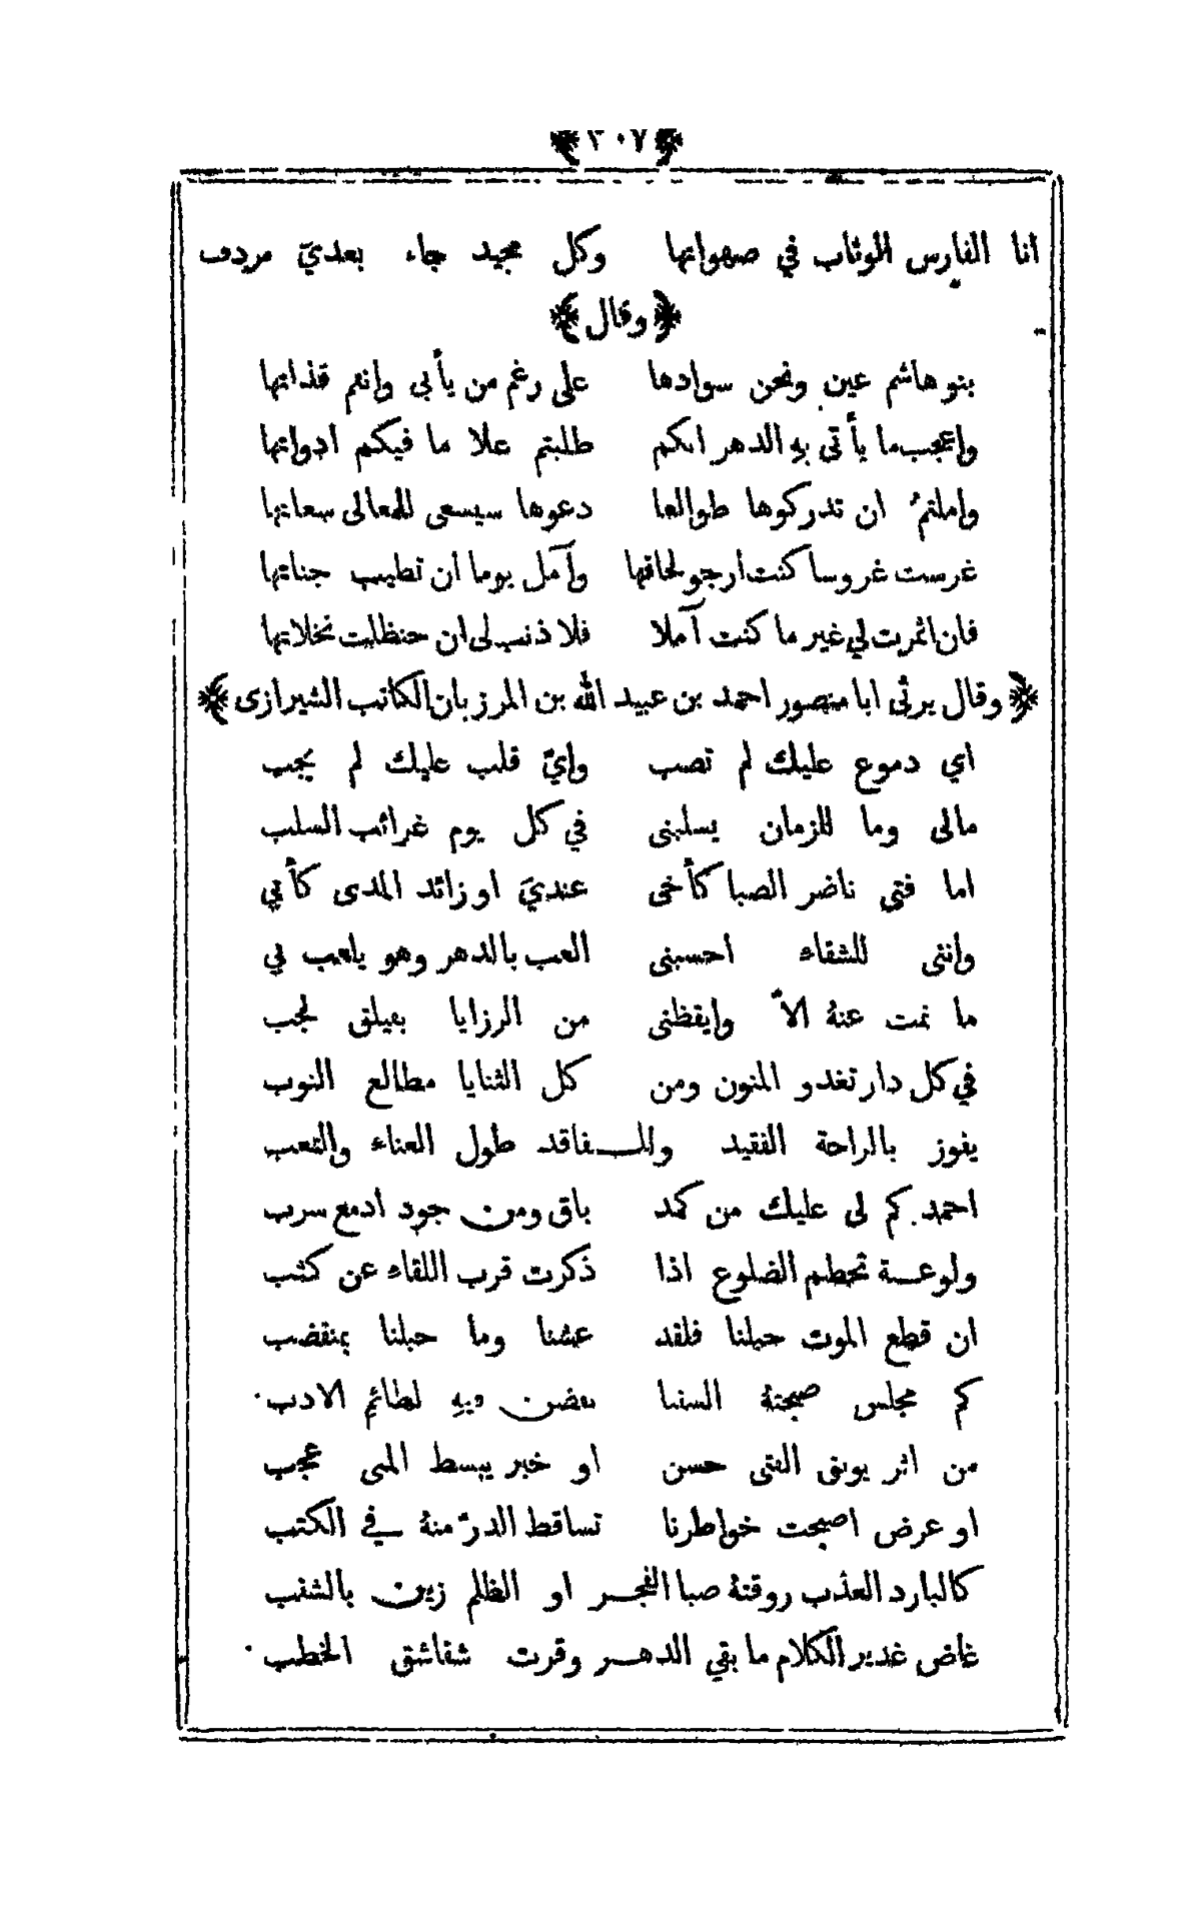 ﴿٣٠٧﴾
انا الفارس الوثاب في صهواتها وكل مجيد جاء بعديَ مردف
﴿وقال﴾
بنو هاشم عين ونحن سوادها على رغم من يأبى وانتم قذاتها
واعجب ما يأتى بهِ الدهر انكم طلبتم علا ما فيكم ادواتها
واملتمُ ان تدركوها طوالعا دعوها سيسعى للمعالى سعاتها
غرست غروسا كنت ارجو لحاقها وآمل يوما ان تطيب جناتها
فان اثمرت لي غير ما كنت آملا فلا ذنب لى ان حنظلت نخلاتها
﴿وقال يرثي ابا منصور احمد بن عبيد الله بن المرزبان الكاتب الشيرازى﴾
اي دموع عليك لم تصب وايّ قلب عليك لم يجب
مالى وما للزمان يسلبنى في كل يوم غرائب السلب
اما فتى ناضر الصبا كأخى عنديَ او زائد المدى كأبي
واننى للشقاء احسبنى العب بالدهر وهو يلعب بي
ما نمت عنهُ الاّ وايقظنى من الرزايا بفيلق لجب
في كل دار تغدو المنون ومن كل الثنايا مطالع النوب
يفوز بالراحة الفقيد وللـفاقد طول العناء والتعب
احمد كم لى عليك من كمد باق ومن جود ادمع سرب
ولوعة تحطم الضلوع اذا ذكرت قرب اللقاء عن كثب
ان قطع الموت حبلنا فلقد عشنا وما حبلنا بمنقضب
كم مجلس صبحتهُ السننا تفضن فيهِ لطائم الادب
من اثر يونق الفتى حسن او خبر يبسط المنى عجب
او عرض اصبحت خواطرنا تساقط الدرّ منهُ في الكتب
كالبارد العذب روقتهُ صبا الفجر او الظلم زين بالشنب
غاض غدير الكلام ما بقي الدهر وقرت شقاشق الخطب